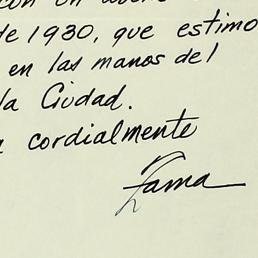 con un
de 1930, que estimo
en las manos del
la Ciudad.
cordialmente
Zama